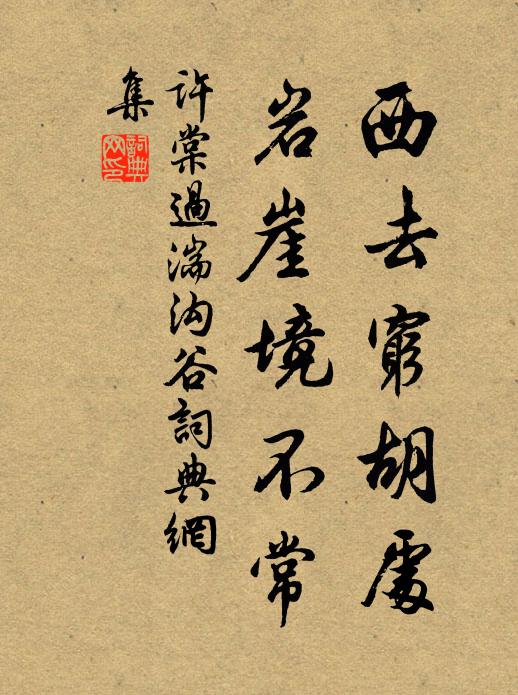 西去窮胡處
岩崖境不常
許棠過湍沟谷詞典網
集
詞典网印